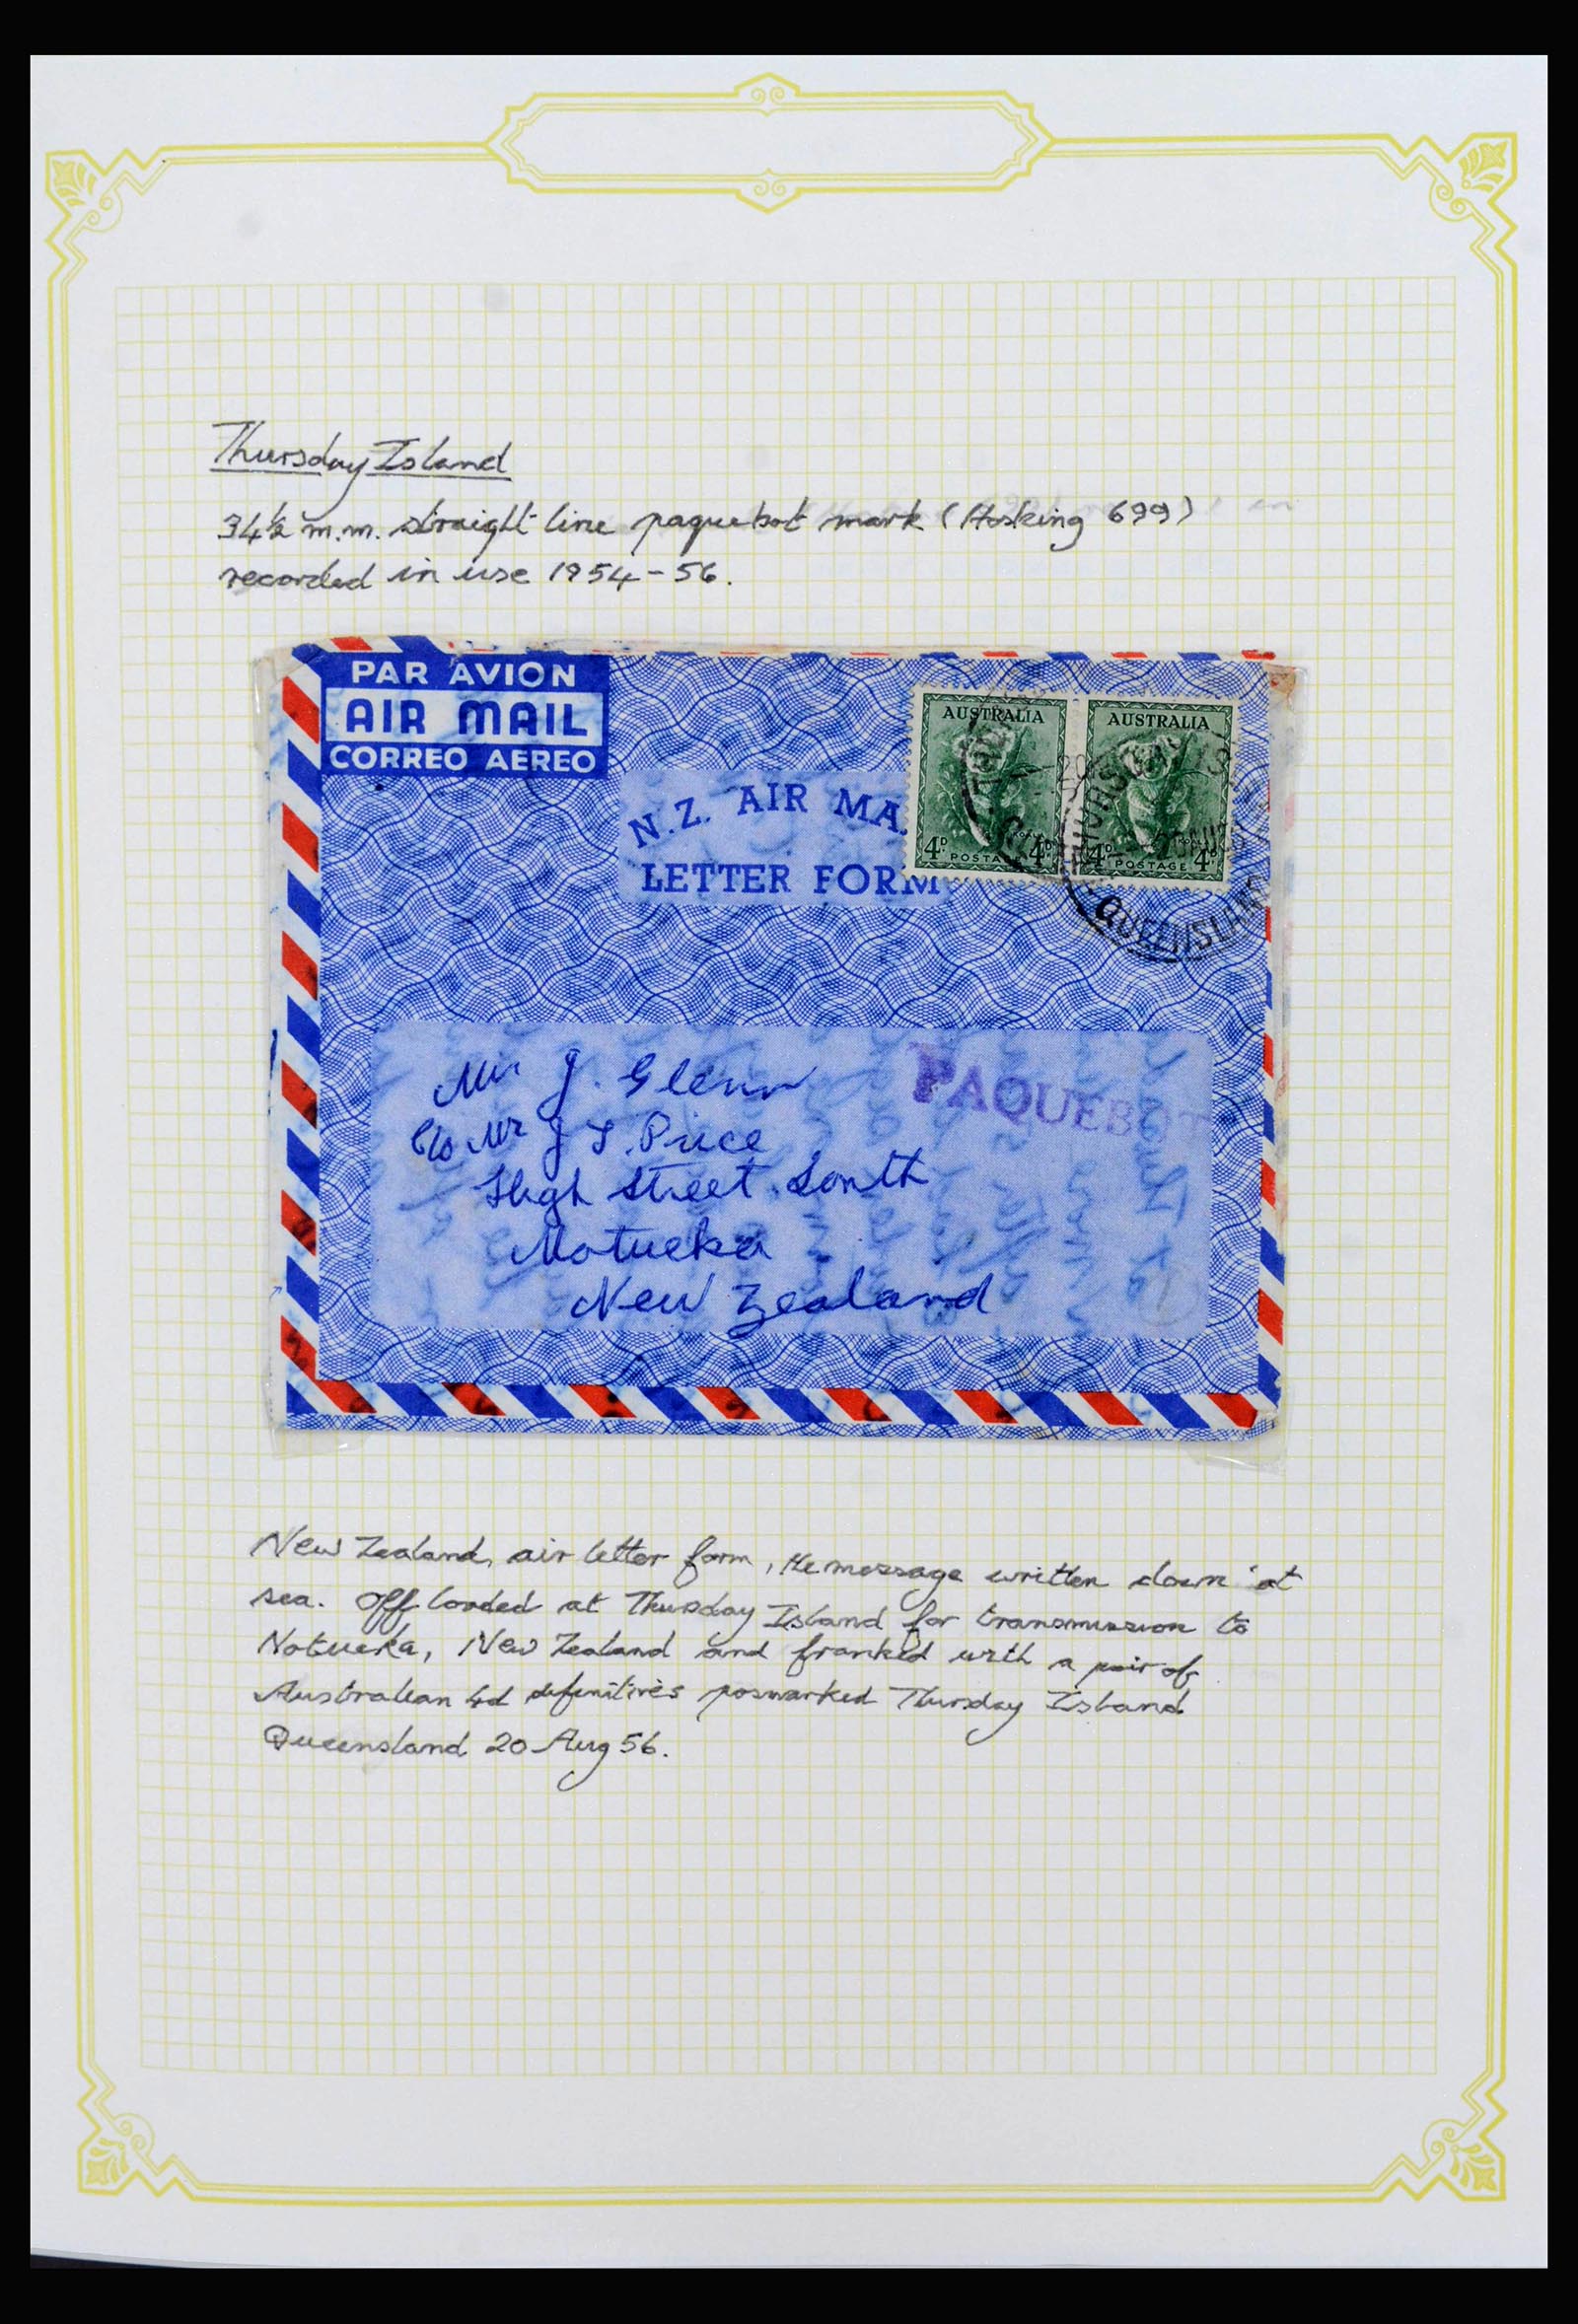 Thursday Island
34½ m.m. straight line paquebot mark (Hosking 699)
recorded in use 1954-56.
PAR AVION
AIR MAIL
CORREO AEREO
N.Z. AIR MA
LETTER FORM
AUSTRALIA
4D POSTAGE 4D
AUSTRALIA
4D POSTAGE 4D
THURSDAY IS
20 AUG
QUEENSLAND
PAQUEBOT
Mr J. Glenn
C/o Mr J T. Price
High Street South
Motueka
New Zealand
New Zealand, air letter form, the message written down at
sea. Off loaded at Thursday Island for transmission to
Notueka, New Zealand and franked with a pair of
Australian 4d definitives posmarked Thursday Island
Queensland 20 Aug 56.